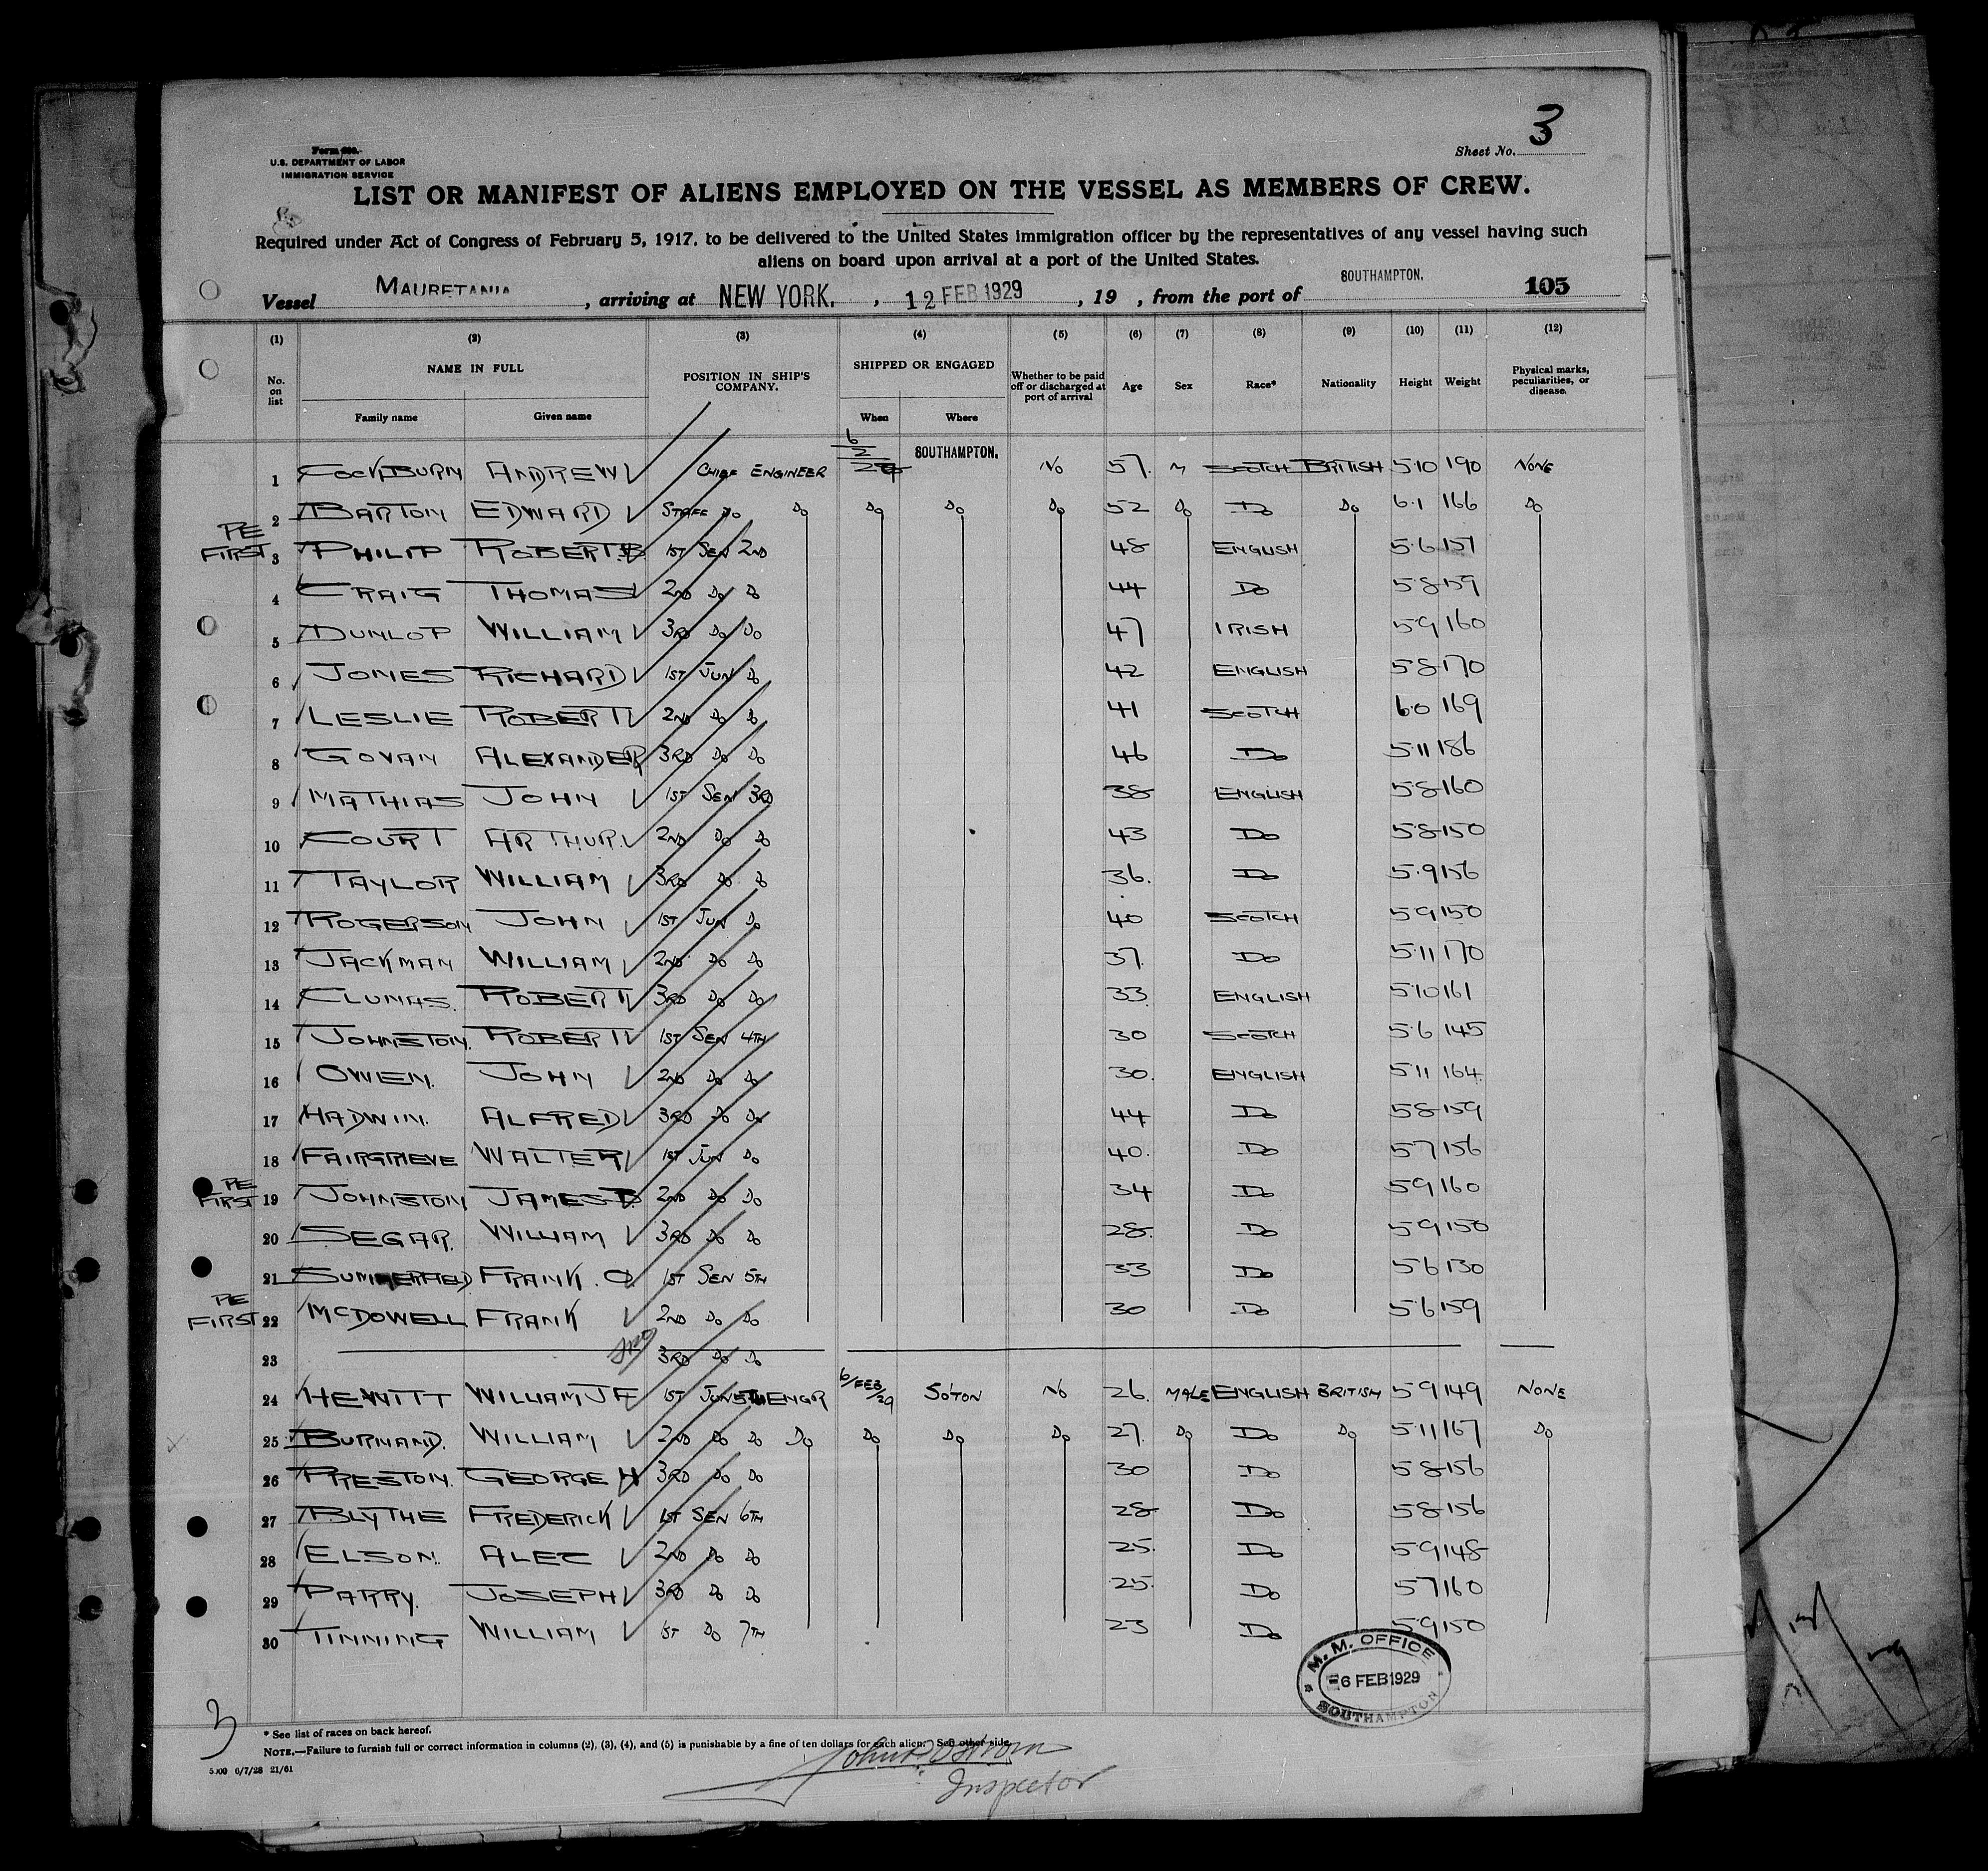 3
Sheet No.
U.S. DEPARTMENT OF LABOR
IMMIGRATION SERVICE
LIST OR MANIFEST OF ALIENS EMPLOYED ON THE VESSEL AS MEMBERS OF CREW.
Required under Act of Congress of February 5, 1917, to be delivered to the United States immigration officer by the representatives of any vessel having such
aliens on board upon arrival at a port of the United States.
Vessel MAURETANIA, arriving at NEW YORK., 12 FEB 1929, 19 , from the port of SOUTHAMPTON. 105
(1) (2) (3) (4) (5) (6) (7) (8) (9) (10) (11) (12)
No. on list NAME IN FULL Family name Given name POSITION IN SHIP'S COMPANY. SHIPPED OR ENGAGED When Where Whether to be paid off or discharged at port of arrival Age Sex Race* Nationality Height Weight Physical marks, peculiarities, or disease.
1 COCKBURN ANDREW CHIEF ENGINEER 6/2/29 SOUTHAMPTON. NO 57. M SCOTCH BRITISH 5·10 190 NONE
2 BARTON EDWARD STAFF DO DO DO DO DO 52 DO DO DO 6·1 166 DO
PE FIRST 3 PHILIP ROBERT.B 1ST SEN 2ND 48 ENGLISH 5·6 157
4 CRAIG THOMAS 2ND DO DO 44 DO 5·8 159
5 DUNLOP WILLIAM 3RD DO DO 47 IRISH 5·9 160
6 JONES RICHARD 1ST JUN DO 42 ENGLISH 5·8 170
7 LESLIE ROBERT 2ND DO DO 41 SCOTCH 6·0 169
8 GOVAN ALEXANDER 3RD DO DO 46 DO 5·11 186
9 MATHIAS JOHN 1ST SEN 3RD 38 ENGLISH 5·8 160
10 COURT ARTHUR. 2ND DO DO 43 DO 5·8 150
11 TAYLOR WILLIAM 3RD DO DO 36. DO 5·9 156
12 ROGERSON JOHN 1ST JUN DO 40 SCOTCH 5·9 150
13 JACKMAN WILLIAM 2ND DO DO 37. DO 5·11 170
14 CLUNAS. ROBERT 3RD DO DO 33. ENGLISH 5·10 161
15 JOHNSTON. ROBERT 1ST SEN 4TH 30 SCOTCH 5·6 145
16 OWEN. JOHN 2ND DO DO 30. ENGLISH 5·11 164
17 HADWIN. ALFRED 3RD DO DO 44 DO 5·8 159
18 FAIRGRIEVE WALTER 1ST JUN DO 40. DO 5·7 156
PE FIRST 19 JOHNSTON JAMES D. 2ND DO DO 34 DO 5·9 160
20 SEGAR. WILLIAM 3RD DO DO 28. DO 5·9 150
21 SUMMERFIELD FRANK. O. 1ST SEN 5TH 33 DO 5·6 130
PE FIRST 22 MCDOWELL FRANK 2ND DO DO 30 DO 5·6 159
23 3RD DO DO
24 HEWITT WILLIAM J F 1ST JUN 5TH ENGR 6/FEB/29 SO'TON NO 26. MALE ENGLISH BRITISH 5·9 149 NONE
25 BURNAND. WILLIAM 2ND DO DO DO DO DO DO 27. DO DO DO 5·11 167 DO
26 PRESTON. GEORGE H 3RD DO DO 30 DO 5·8 156
27 BLYTHE FREDERICK 1ST SEN 6TH 28 DO 5·8 156
28 ELSON. ALEC 2ND DO DO 25. DO 5·9 148
29 PARRY. JOSEPH 3RD DO DO 25. DO 5·7 160
30 TINNING WILLIAM 1ST DO 7TH 23 DO 5·9 150
M. M. OFFICE
6 FEB 1929
SOUTHAMPTON
3
* See list of races on back hereof.
NOTE.—Failure to furnish full or correct information in columns (2), (3), (4), and (5) is punishable by a fine of ten dollars for each alien. See other side.
6/7/28 21/61
Inspector